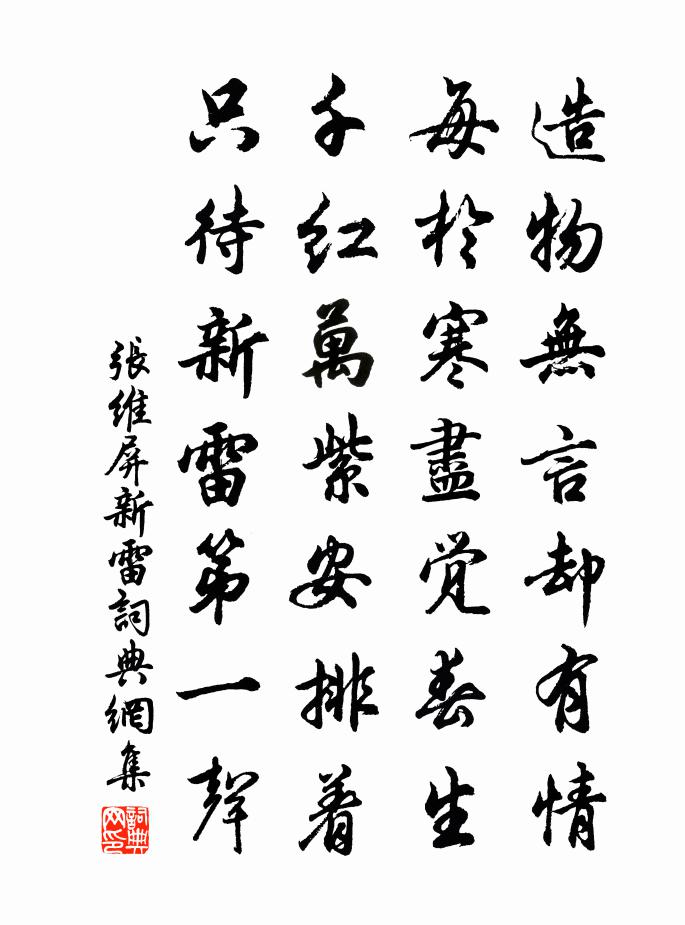 造物無言却有情
每於寒盡覚春生
千红萬紫安排着
只待新雷第一聲
張維屏新雷詞典網集
詞典网印